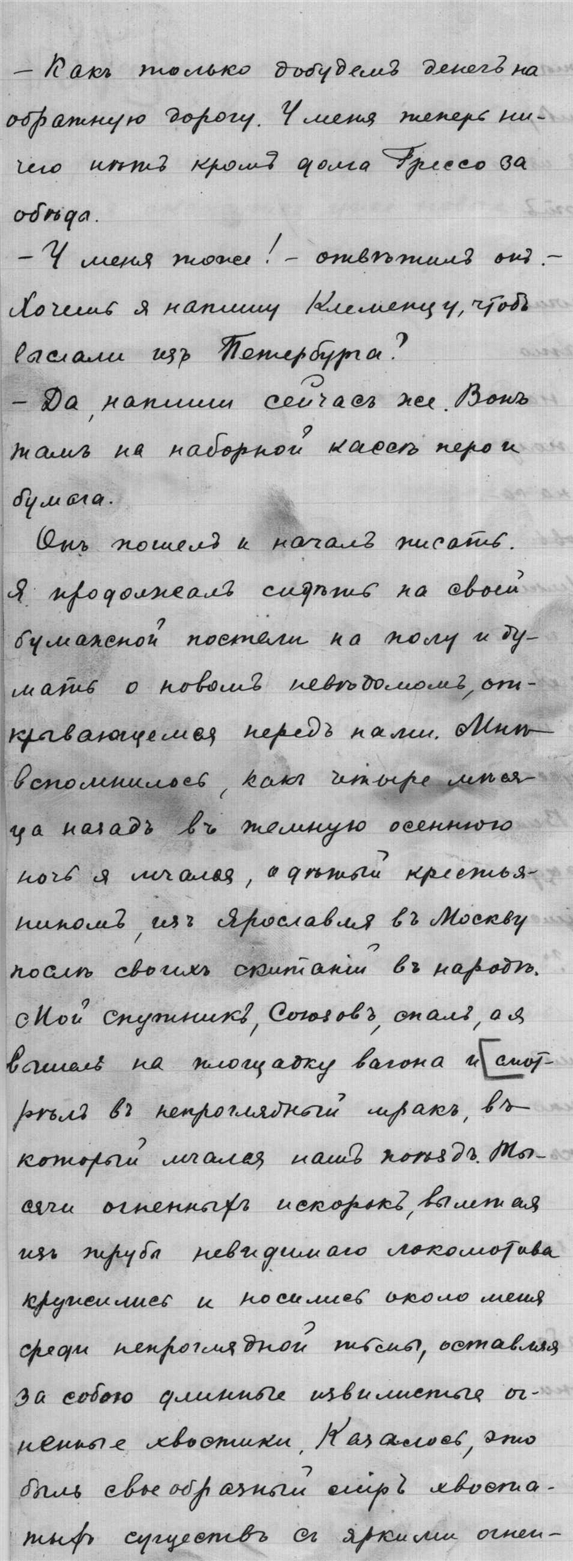 — Какъ только добудемъ денегъ на
обратную дорогу. У меня теперь ни-
чего нѣтъ кромѣ долга Грессо за
обѣда.
— У меня тоже! — отвѣтилъ онъ. —
Хочешь я напишу Клеменцу, чтобъ
выслали изъ Петербурга?
— Да, напиши сейчасъ же. Вонъ
тамъ на наборной кассѣ перо и
бумага.
Онъ пошелъ и началъ писать.
Я продолжалъ сидѣть на своей
бумажной постели на полу и ду-
мать о новомъ невѣдомомъ, от-
крывающемся передъ нами. Мнѣ
вспомнилось, какъ четыре мѣся-
ца назадъ въ темную осеннюю
ночь я мчался, одѣтый крестья-
ниномъ, изъ Ярославля въ Москву
послѣ своихъ скитаній въ народѣ.
Мой спутникъ, Союзовъ, спалъ, а я
вышелъ на площадку вагона и [смот-
рѣлъ въ непроглядный мракъ, въ
который мчался нашъ поѣздъ. Ты-
сячи огненныхъ искорокъ, вылетая
изъ трубы невидимаго локомотива
кружились и носились около меня
среди непроглядной тьмы, оставляя
за собою длинные извилистые ог-
ненные хвостики. Казалось, это
былъ своеобразный міръ хвоста-
тыхъ существъ съ яркими огнен-